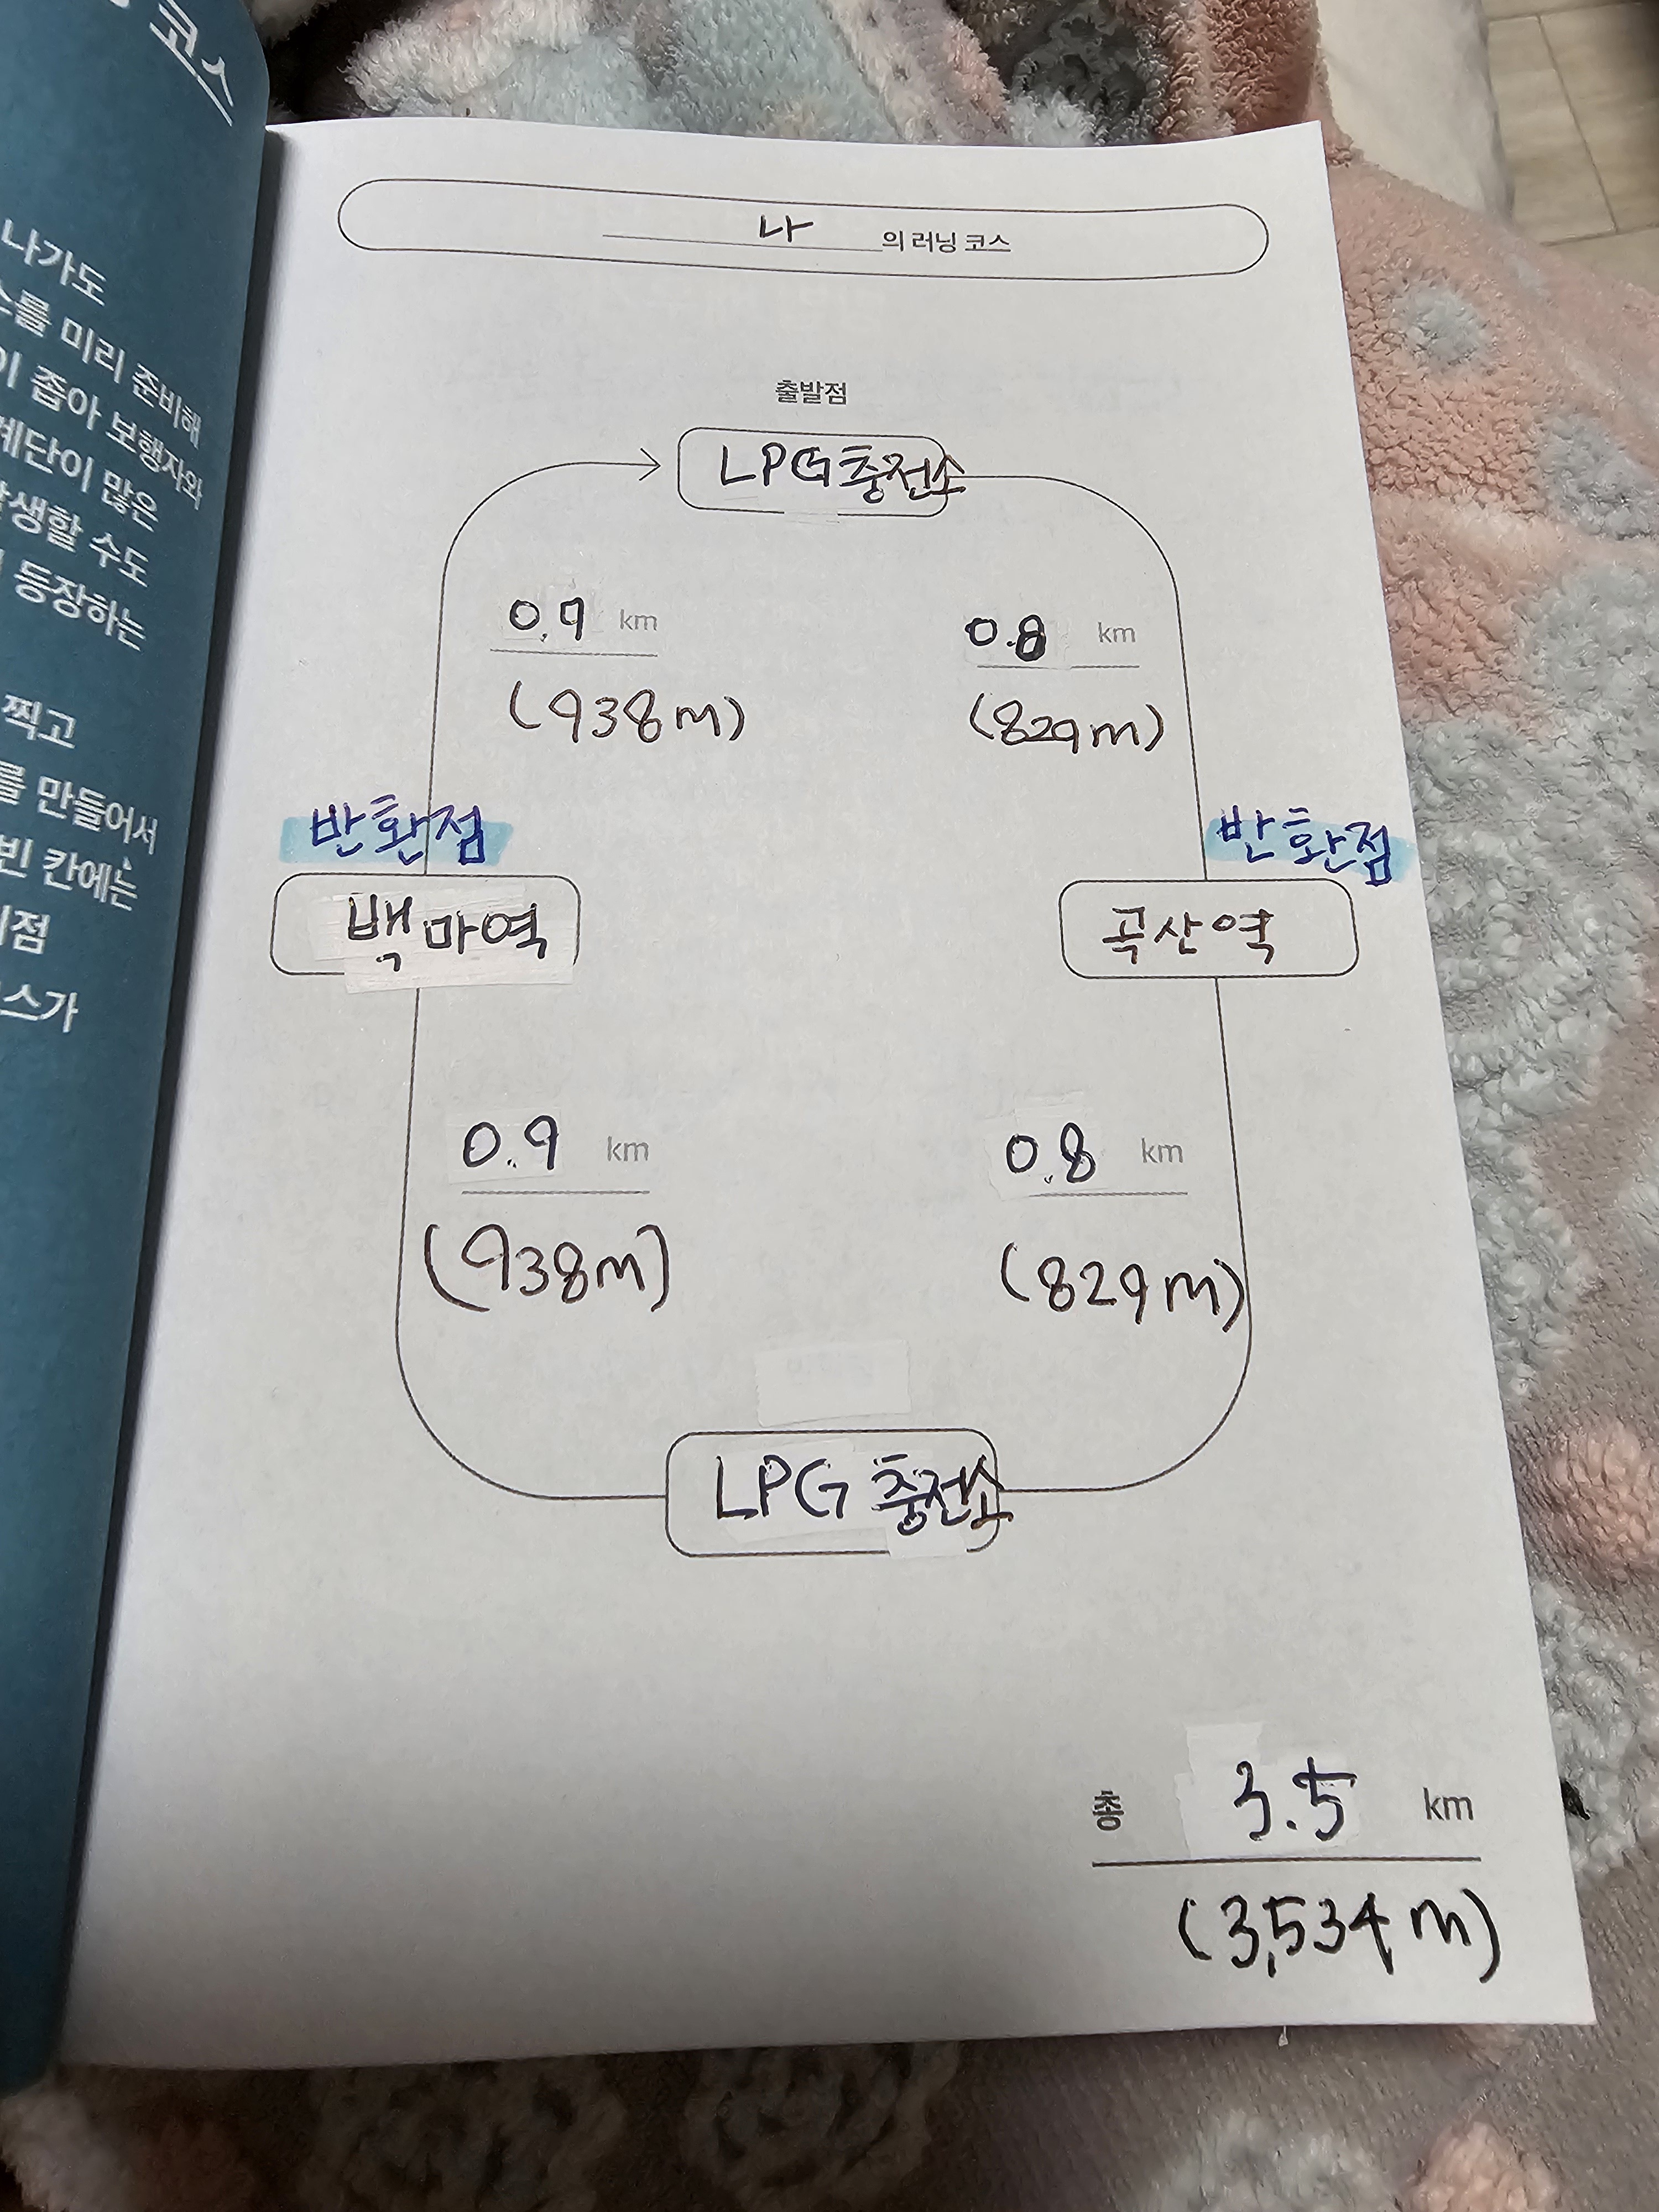 코스
나가도
를 미리 준비해
이 좁아 보행자와
계단이 많은
생할 수도
등장하는
찍고
를 만들어서
빈 칸에는
점
스가
나 의 러닝 코스
출발점
LPG충전소
0.9 km
0.8 km
(938m)
(829m)
반환점
반환점
백마역
곡산역
0.9 km
0.8 km
(938m)
(829m)
LPG 충전소
총 3.5 km
(3,534m)